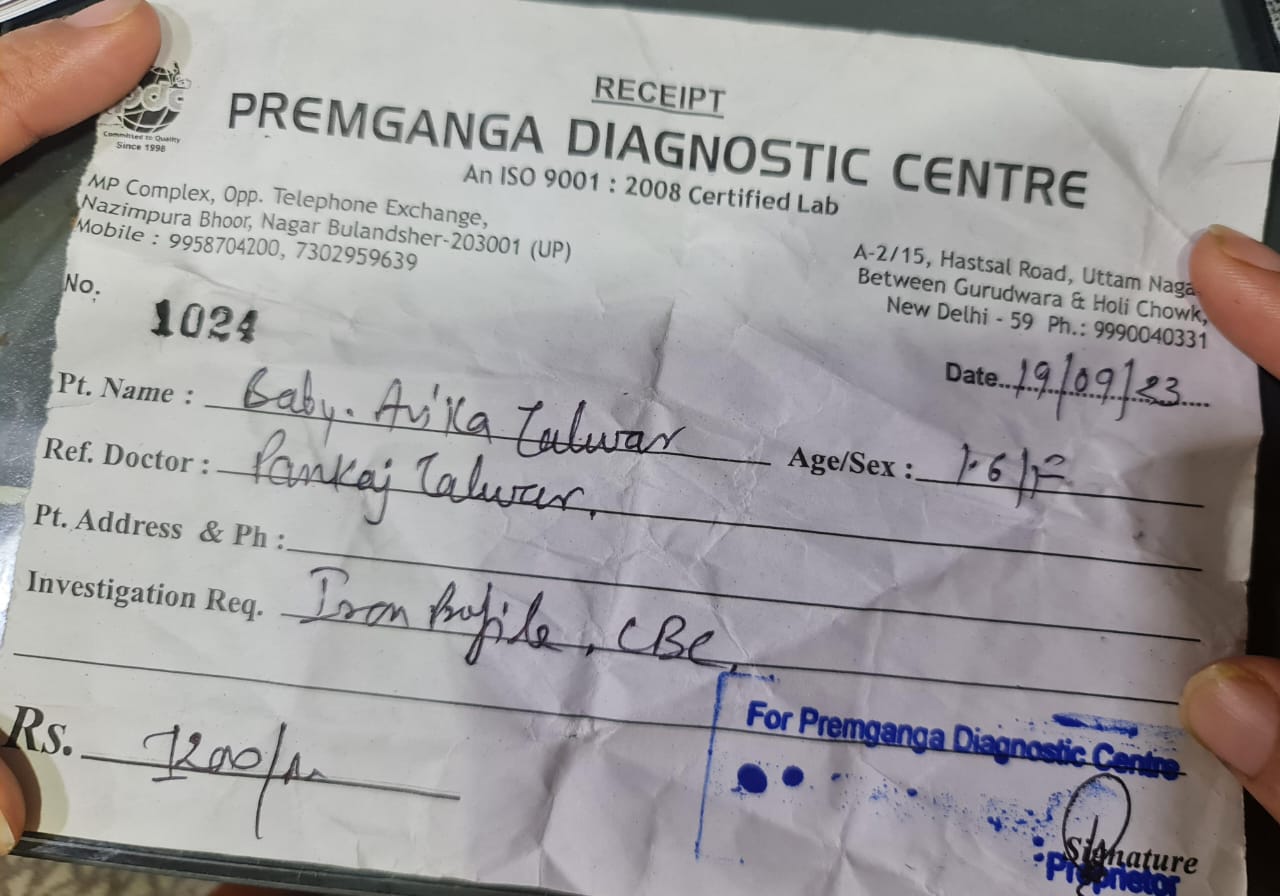 RECEIPT
pdc
Committed to Quality
Since 1998
PREMGANGA DIAGNOSTIC CENTRE
An ISO 9001 : 2008 Certified Lab
MP Complex, Opp. Telephone Exchange,
Nazimpura Bhoor, Nagar Bulandsher-203001 (UP)
Mobile : 9958704200, 7302959639
A-2/15, Hastsal Road, Uttam Naga
Between Gurudwara & Holi Chowk,
New Delhi - 59 Ph.: 9990040331
No. 1024
Date..19/09/23....
Pt. Name : Baby. Avika Talwar Age/Sex : 1.6/F
Ref. Doctor : Pankaj Talwar,
Pt. Address & Ph :
Investigation Req. Iron Profile, CBC,
Rs. 1200/-
For Premganga Diagnostic Centre
Signature
Proprietor